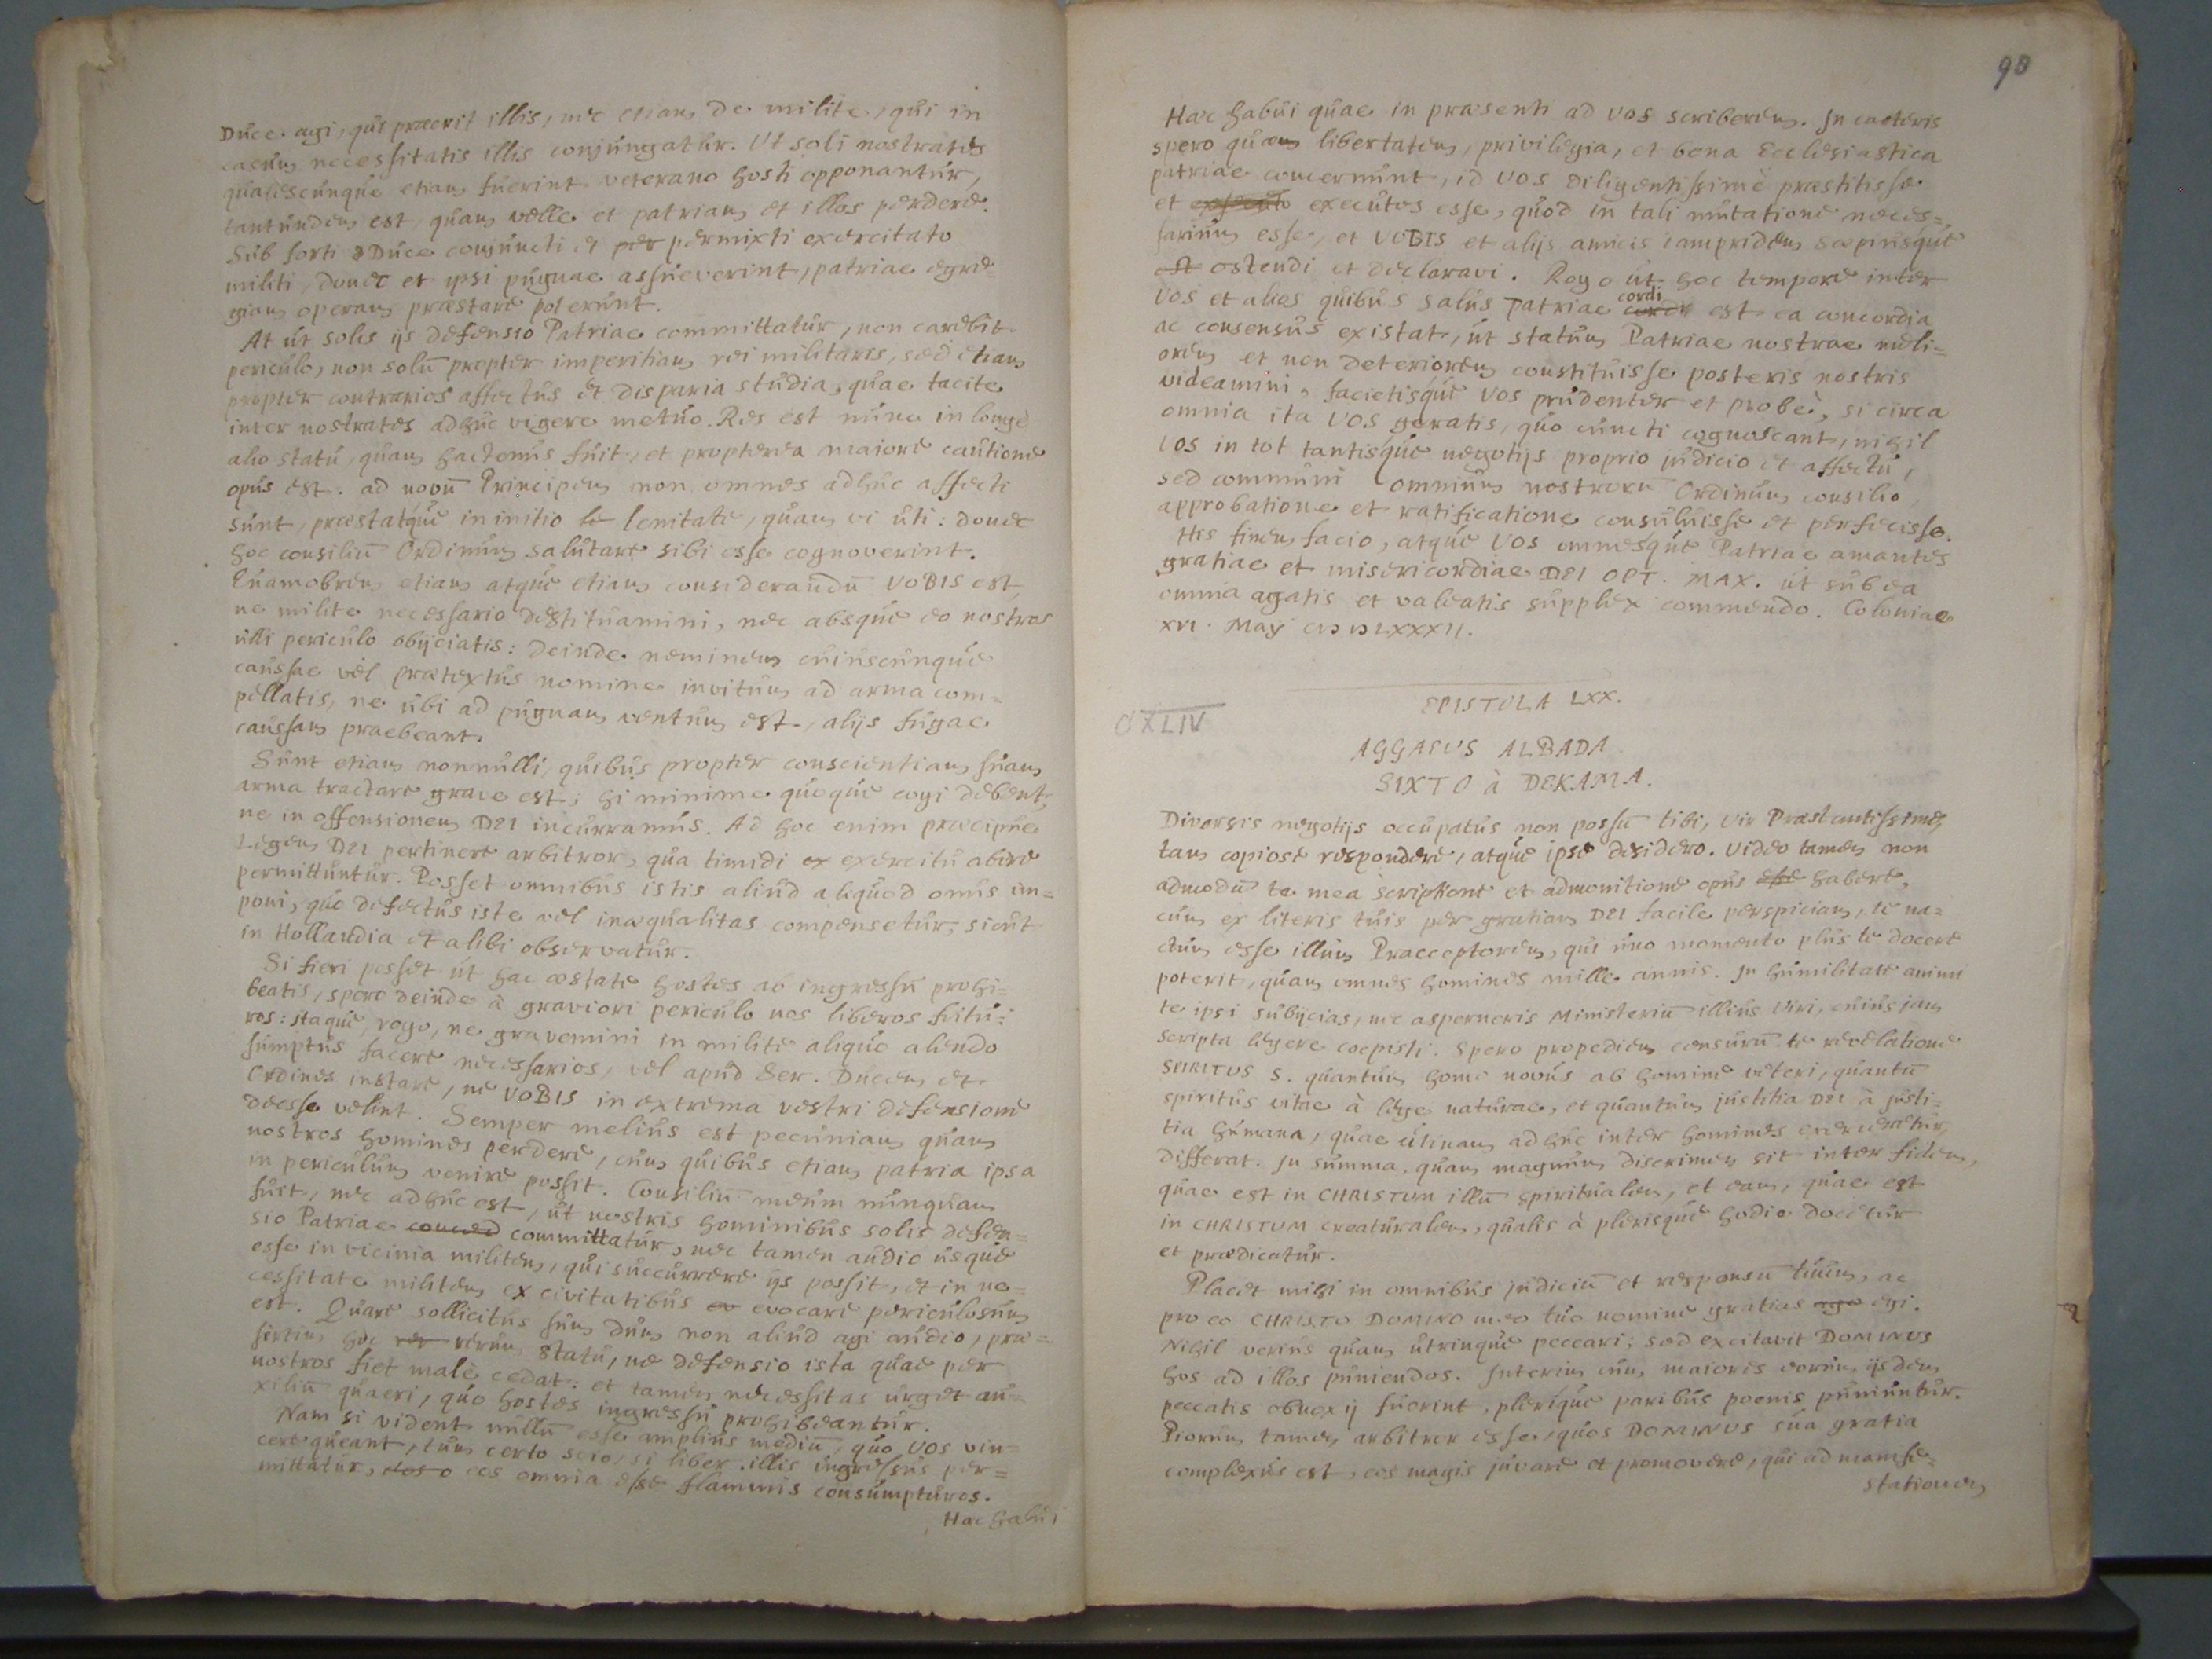 Duce agi, qui praeerit illis, nec etiam de milite, qui in
casum necessitatis illis conjungatur. Ut soli nostrates
qualescunque etiam fuerint veterano hosti opponantur,
tantundem est, quam velle et patriam et illos perdere.
Sub forti Duce conjuncti et per permixti exercitato
militi, donec et ipsi pugnae assueverint, patriae egre=
giam operam praestare poterunt.
At ut solis ijs defensio Patriae committatur, non carebit
periculo, non solū propter imperitiam rei militaris, sed etiam
propter contrarios affectus et disparia studia, quae tacite
inter nostrates adhuc vigere metuo. Res est nunc in longe
alio statu, quam hactenus fuit, et propterea maiore cautione
opus est. ad novū Principem non omnes adhuc affecti
sunt, praestatque in initio le lenitate, quam vi uti: donec
hoc consiliū Ordinum salutare sibi esse cognoverint.
Quamobrem etiam atque etiam considerandū VOBIS est,
ne milite necessario destituamini, nec absque eo nostros
ulli periculo obijciatis: deinde neminem cuiuscunque
caussae vel praetextus nomine invitum ad arma com=
pellatis, ne ubi ad pugnam ventum est, alijs fugae
caussam praebeant.
Sunt etiam nonnulli, quibus propter conscientiam suam
arma tractare grave est; hi minime quoque cogi debent,
ne in offensionem DEI incurramus. Ad hoc enim praecipue
Legem DEI pertinere arbitror, qua timidi ex exercitu abire
permittuntur. Posset omnibus istis aliud aliquod onus im=
poni, quo defectus iste vel inaequalitas compensetur, sicut
in Hollandia et alibi observatur.
Si fieri posset ut hac aestate hostes ab ingressu prohi=
beatis, spero deinde à graviori periculo nos liberos futu=
ros: itaque, rogo, ne gravemini in milite aliquo alendo
sumptus facere necessarios, vel apud Ser. Ducem et
Ordines instare, ne VOBIS in extrema vestri defensione
deesse velint. Semper melius est pecuniam quam
nostros homines perdere, cum quibus etiam patria ipsa
in periculum venire possit. Consiliū meum nunquam
fuit, nec adhuc est, ut nostris hominibus solis defen=
sio Patriae committatur, nec tamen audio usque
esse in vicinia militem, qui succurrere ijs possit, et in ne=
cessitate militem ex civitatibus ev evocare periculosum
est. Quare sollicitus sum dum non aliud agi audio, prae=
sertim hoc rer rerum statu, ne defensio ista quae per
nostros fiet malè cedat: et tamen necessitas urget au=
xiliū quaeri, quo hostes ingressu prohibeantur.
Nam si vident nullū esse amplius mediū, quo VOS vin=
cere queant, tum certo scio, si liber illis ingressus per=
mittatur, eos omnia esse flammis consumpturos.
Haec habui
98
Haec habui quae in praesenti ad VOS scriberem. In caeteris
spero quam libertatem, privilegia, et bona Ecclesiastica
patriae concernunt, id VOS diligentissimè praestitisse
et executos esse, quod in tali mutatione neces=
sarium esse, et VOBIS et alijs amicis iampridem saepiusque
est ostendi et declaravi. Rogo ut hoc tempore inter
VOS et alios quibus salus Patriae cordi est ea concordia
ac consensus existat, ut statum Patriae nostrae meli=
orem et non deteriorem constituisse posteris nostris
videamini, facietisque VOS prudenter et probè, si circa
omnia ita VOS geratis, quo cuncti cognoscant, nihil
VOS in tot tantisque negotijs proprio judicio et affectu,
sed communi omnium nostrorū Ordinum consilio,
approbatione et ratificatione consuluisse et perfecisse.
His finem facio, atque VOS omnesque Patriae amantes
gratiae et misericordiae DEI OPT. MAX. ut sub ea
omnia agatis et valeatis supplex commendo. Coloniae
XVI. Maij CIↃ IↃ LXXXII.
EPISTOLA LXX.
CXLIV
AGGAEUS ALBADA
SIXTO à DEKAMA.
Diversis negotijs occupatus non possū tibi, Vir Praestantissime,
tam copiose respondere, atque ipse desidero. Video tamen non
admodū te mea scriptione et admonitione opus esse habere,
cum ex literis tuis per gratiam DEI facile perspiciam, te na=
ctum esse illum Praeceptorem, qui uno momento plus te docere
poterit, quam omnes homines mille annis. In humilitate animi
te ipsi subijcias, nec asperneris Ministeriū illius Viri, cuius jam
scripta legere coepisti. Spero propediem te revelatione
SPIRITUS S. quantum homo novus ab homine veteri, quantū
spiritus vitae à lege naturae, et quantum justitia DEI à justi=
tia humana, quae utinam adhuc inter homines exerceretur,
differat. In summa, quam magnum discrimen sit inter fidem,
quae est in CHRISTUM illū spiritualem, et eam, quae est
in CHRISTUM creaturalem, qualis à plerisque hodie docetur
et praedicatur.
Placet mihi in omnibus judiciū et responsū tuum, ac
pro eo CHRISTO DOMINO meo tuo nomine gratias ago egi.
Nihil verius quam utrinque peccari; sed excitavit DOMINUS
hos ad illos puniendos. Interim cum maioris eorum ijsdem
peccatis obnoxij fuerint, plerique paribus poenis puniuntur.
Piorum tamen arbitror esse, quos DOMINUS sua gratia
complexus est, eos magis juvare et promovere, qui ad manife=
stationem